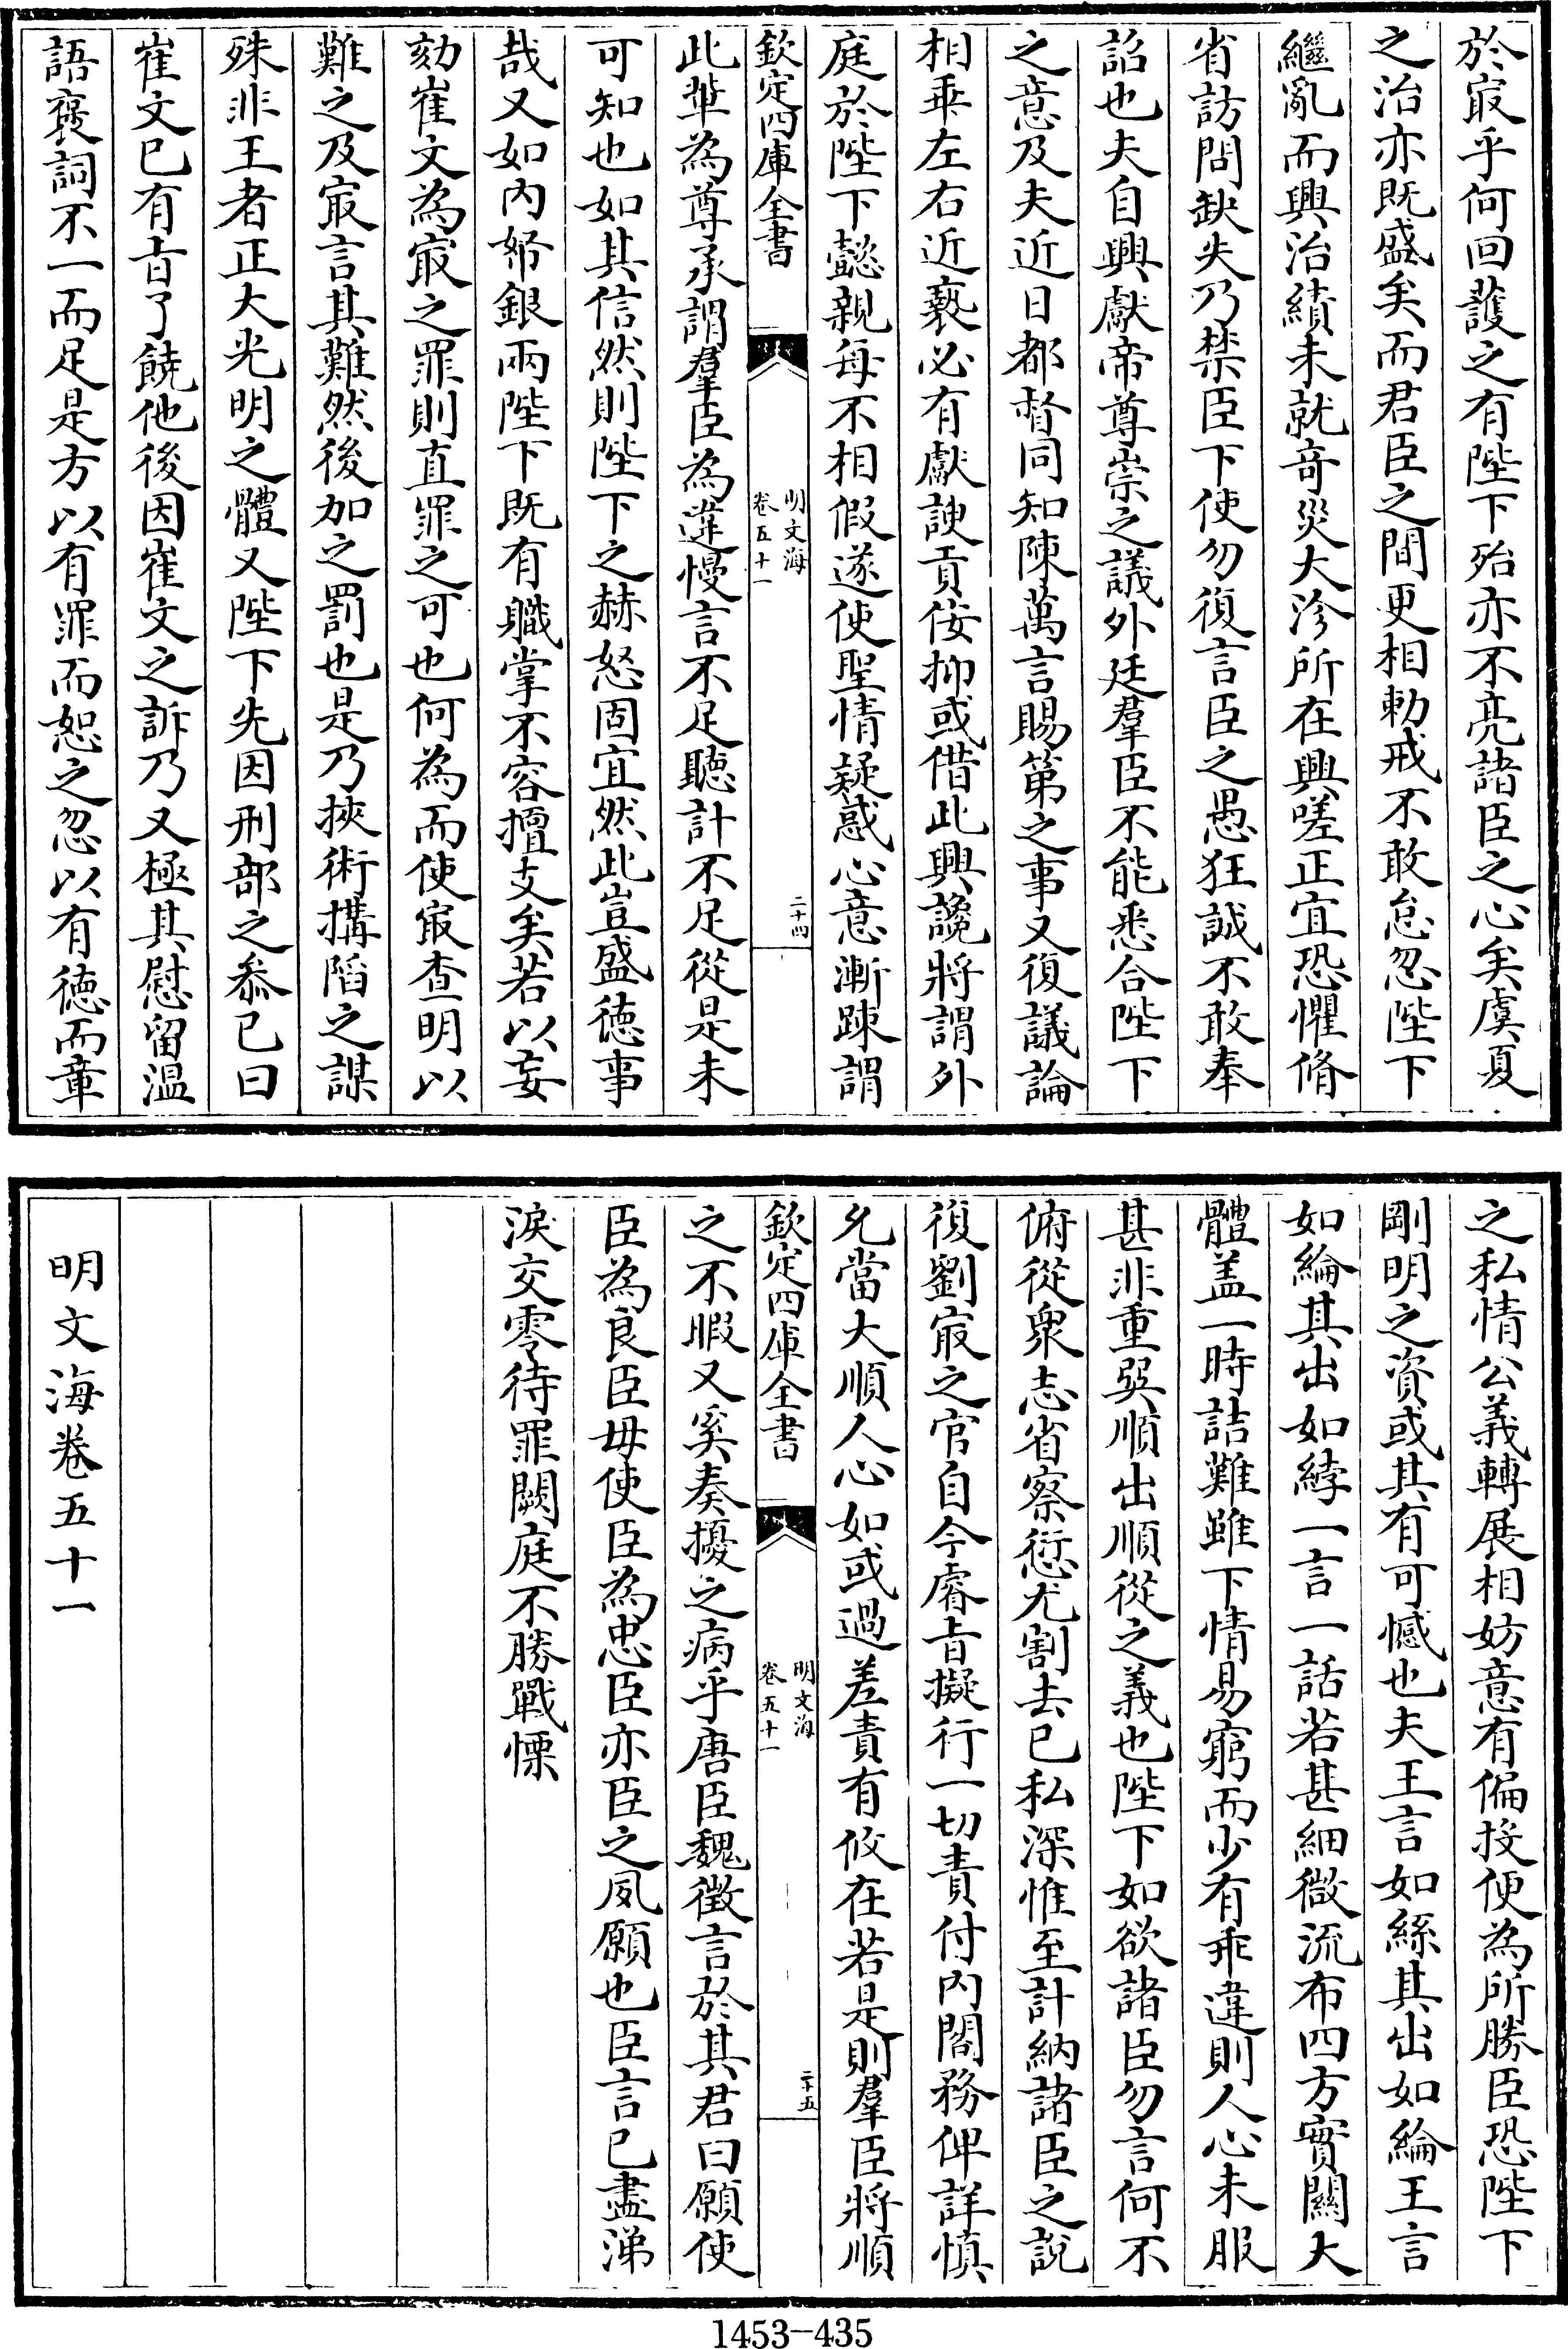 於㝡乎何回䕶之有陛下殆亦不亮諸臣之心矣虞夏
之治亦既盛矣而君臣之間更相勅戒不敢怠忽陛下
繼亂而興治績未就竒災大沴所在興嗟正宜恐懼脩
省訪問缺失乃禁臣下使勿復言臣之愚狂誠不敢奉
詔也夫自興獻帝尊崇之議外廷羣臣不能悉合陛下
之意及夫近日都督同知陳萬言賜第之事又復議論
相乖左右近褻必有獻諛貢佞抑或借此興讒將謂外
庭於陛下懿親每不相假遂使聖情疑惑心意漸踈謂
欽定四庫全書
明文海
卷五十一
二十四
此輩為尊承謂羣臣為違慢言不足聽計不足從是未
可知也如其信然則陛下之赫怒固宜然此豈盛徳事
哉又如内帑銀兩陛下既有職掌不容擅支矣若以妄
劾崔文為㝡之罪則直罪之可也何為而使㝡查明以
難之及㝡言其難然後加之罰也是乃挾術搆䧟之謀
殊非王者正大光明之體又陛下先因刑部之叅已曰
崔文已有㫖了饒他後因崔文之訴乃又極其慰留温
語褒詞不一而足是方以有罪而恕之忽以有徳而章
之私情公義轉展相妨意有偏投便為所勝臣恐陛下
剛明之資或其有可憾也夫王言如絲其出如綸王言
如綸其出如綍一言一話若甚細微流布四方實關大
體盖一時詰難雖下情易窮而少有乖違則人心未服
甚非重巽順出順從之義也陛下如欲諸臣勿言何不
俯從衆志省察愆尤割去已私深惟至計納諸臣之說
復劉㝡之官自今睿㫖擬行一切責付内閣務俾詳慎
允當大順人心如或過差責有攸在若是則羣臣將順
欽定四庫全書
明文海
卷五十一
二十五
之不暇又奚奏擾之病乎唐臣魏徴言於其君曰願使
臣為良臣毋使臣為忠臣亦臣之夙願也臣言已盡涕
淚交零待罪闕庭不勝戰慄
明文海卷五十一
1453-435